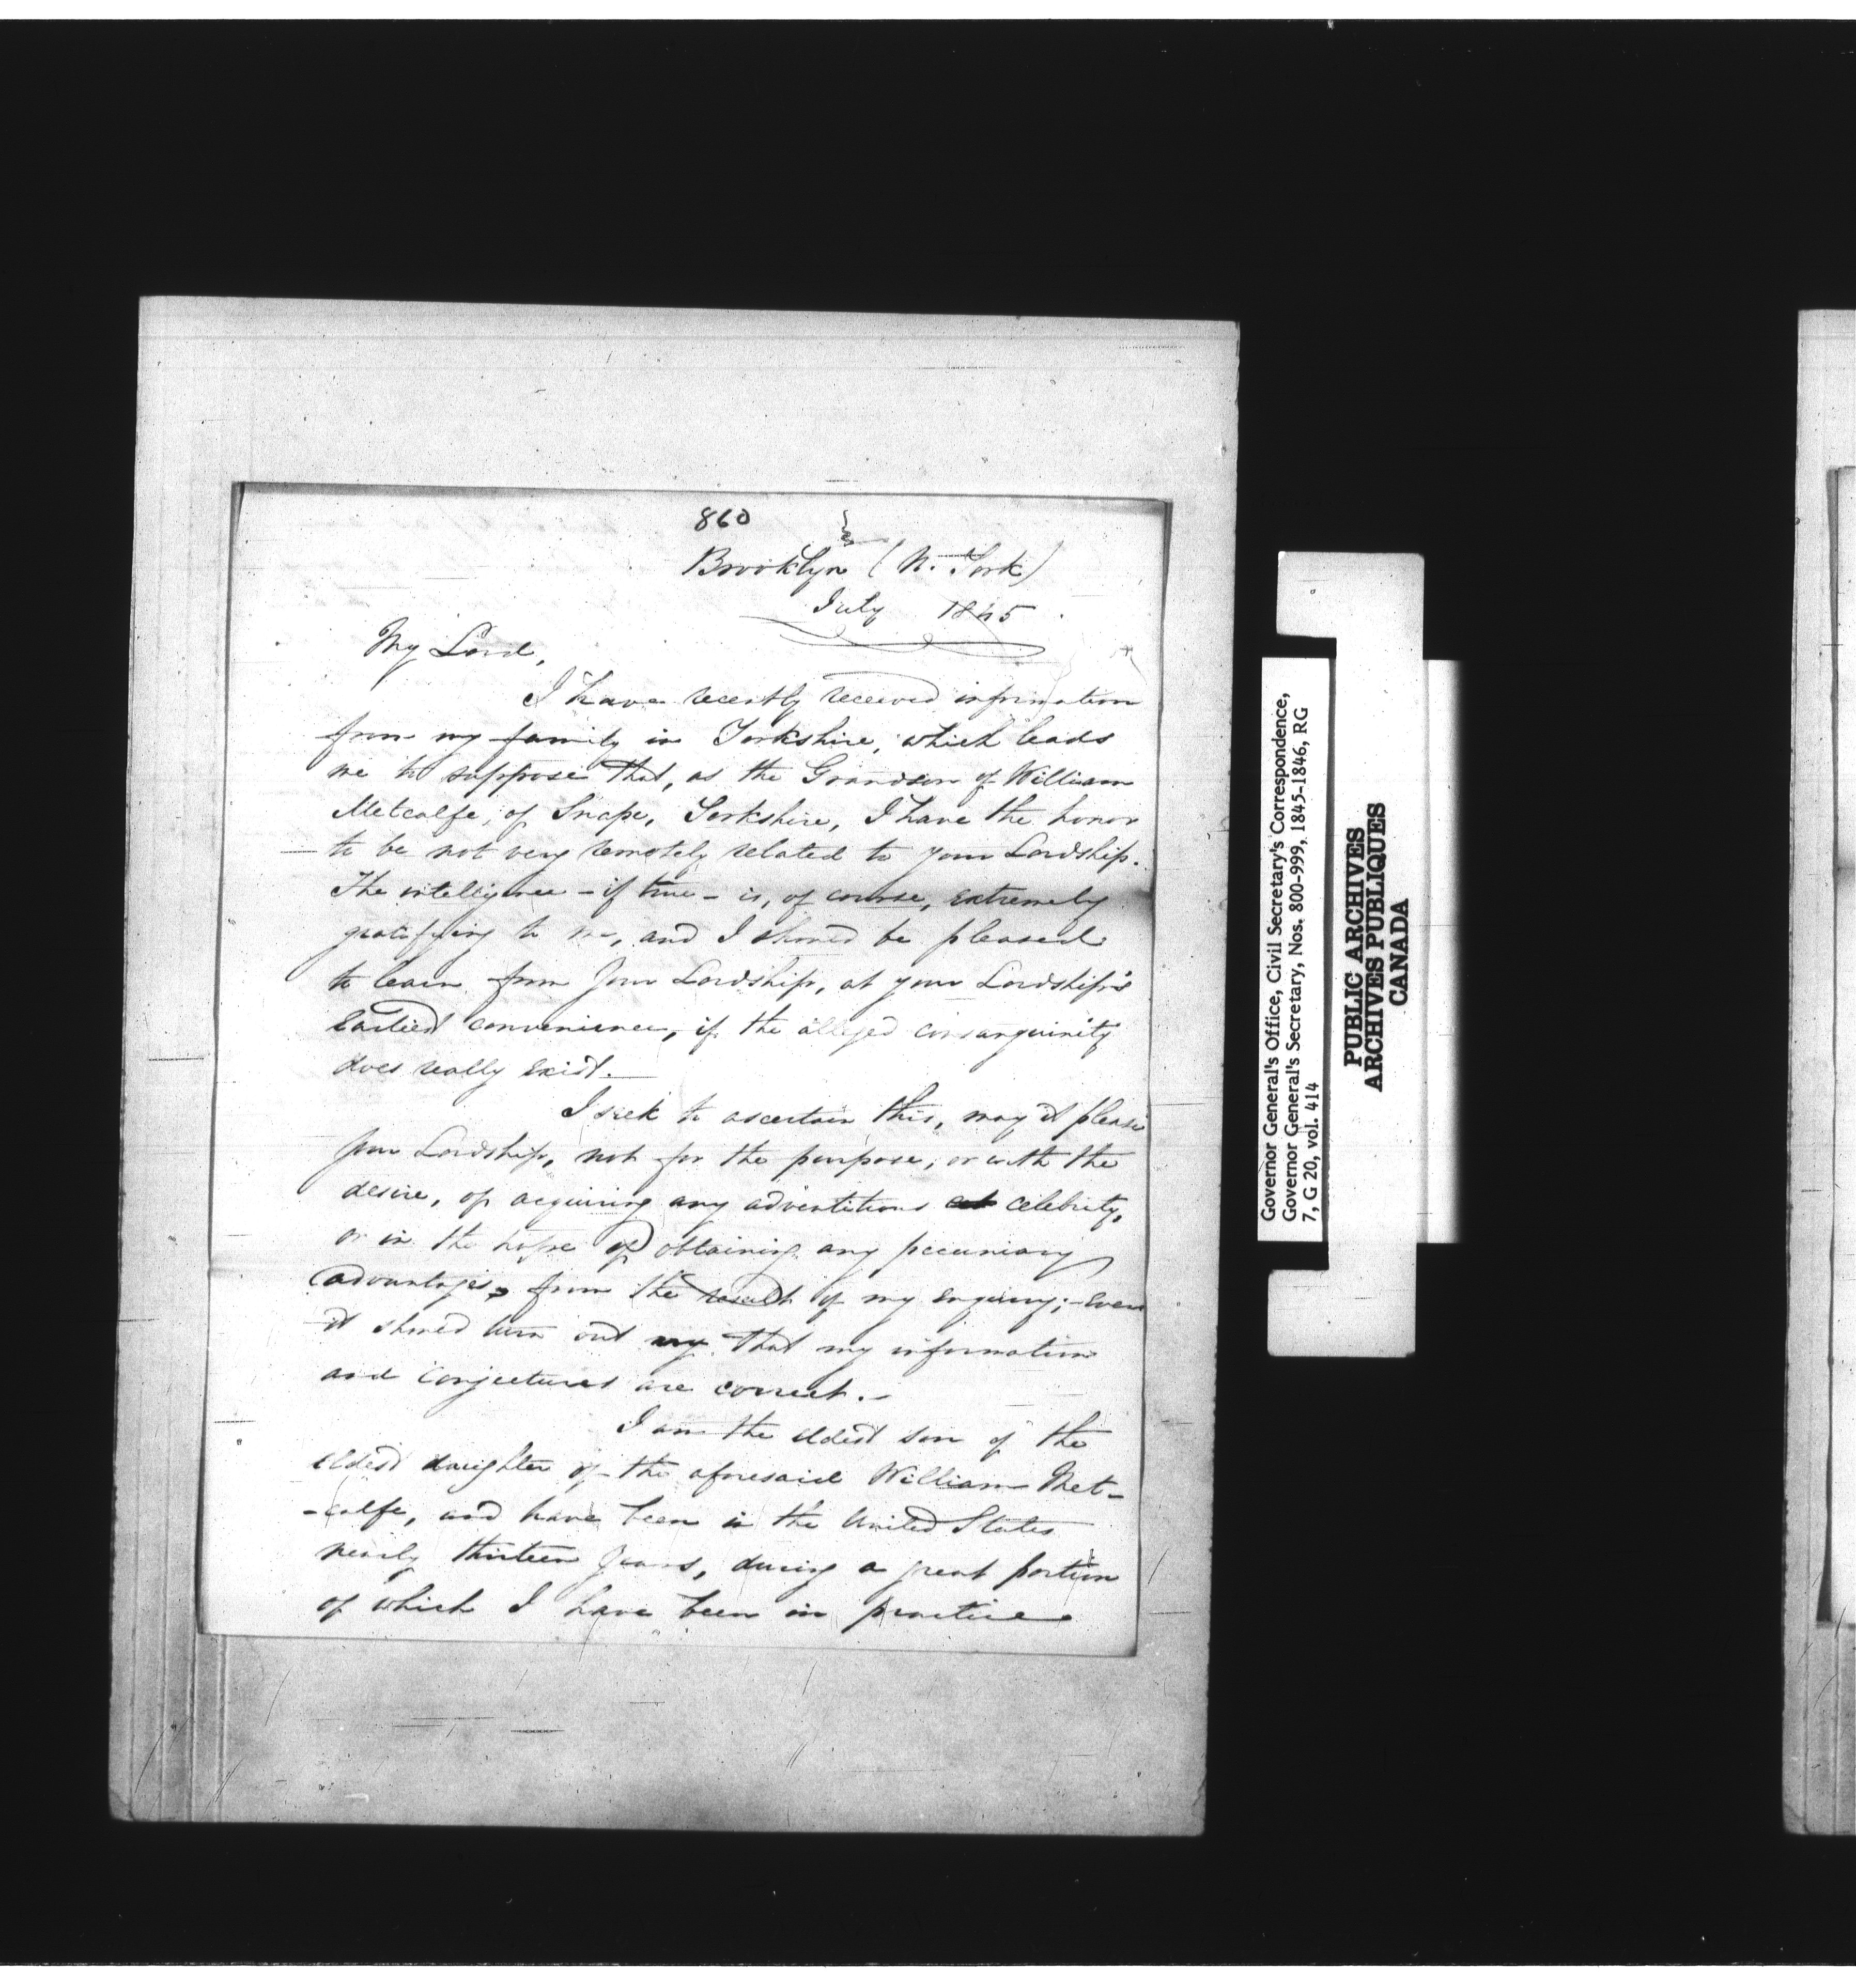 860
Brooklyn (N. York)
July 1845
My Lord,
I have recently received information
from my family in Yorkshire, which leads
me to suppose that, as the Grandson of William
Metcalfe, of Snape, Yorkshire, I have the honor
to be not very remotely related to your Lordship.
The intelligence - if true - is, of course, extremely
gratifying to me, and I should be pleased
to learn from Your Lordship, at your Lordship's
earliest convenience, if the alleged consanguinity
does really exist.
I seek to ascertain this, may it please
Your Lordship, not for the purpose, or with the
desire, of acquiring any adventitious celebrity,
or in the hope of obtaining any pecuniary
advantages, from the result of my enquiry; - even
it should turn out my that my information
and conjectures are correct. -
I am the eldest son of the
eldest daughter of the aforesaid William Met-
-calfe, and have been in the United States
nearly thirteen years, during a great portion
of which I have been in practice
Governor General's Office, Civil Secretary's Correspondence,
Governor General's Secretary, Nos. 800-999, 1845-1846, RG
7, G 20, vol. 414
PUBLIC ARCHIVES
ARCHIVES PUBLIQUES
CANADA